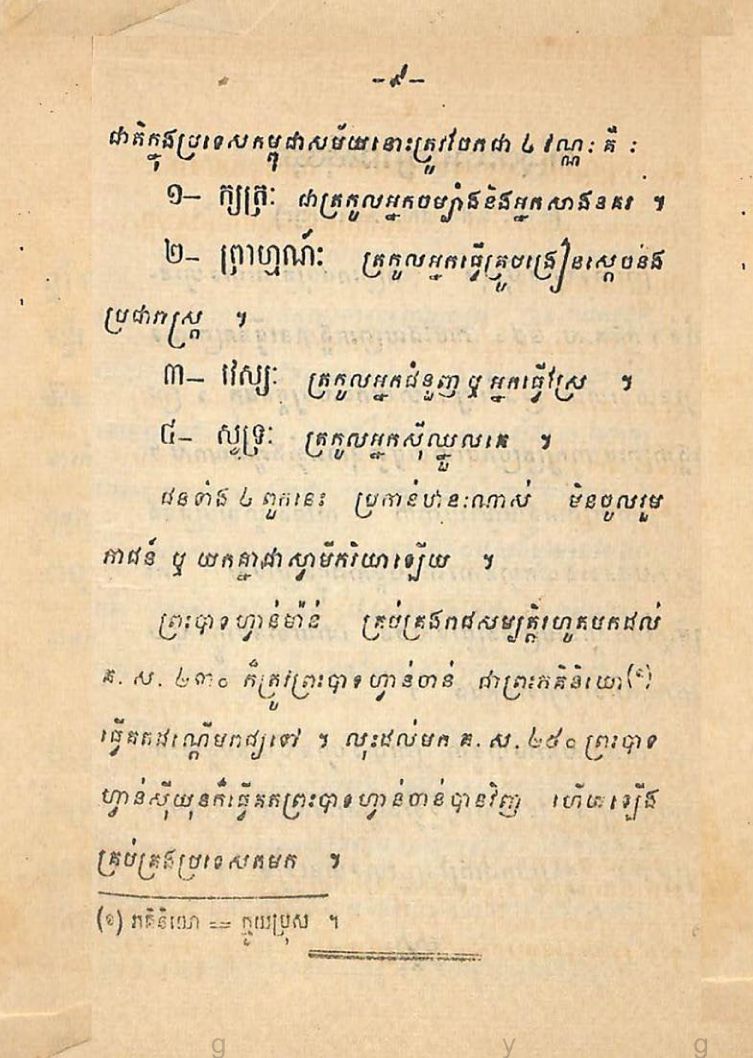 -៩-
ជាតិក្នុងប្រទេសកម្ពុជាសម័យនោះត្រូវចែកជា ៤ វណ្ណៈ គឺ :
១- ក្សត្រៈ ជាត្រកូលអ្នកចម្បាំងនិងអ្នកសាងនគរ ។
២- ព្រាហ្មណ៍ៈ ត្រកូលអ្នកធ្វើគ្រូបង្រៀនស្ដេចនឹង
ប្រជារាស្ត្រ ។
៣- វេស្សៈ ត្រកូលអ្នកជំនួញ ឬ អ្នកធ្វើស្រែ ។
៤- សូទ្រៈ ត្រកូលអ្នកស៊ីឈ្នួលគេ ។
ជនទាំង ៤ ពួកនេះ ប្រកាន់ឋានៈណាស់ មិនចូលរួម
ភាជន៍ ឬ យកគ្នាជាស្វាមីភរិយាឡើយ ។
ព្រះបាទហ្វាន់ម៉ាន់ គ្រប់គ្រងរាជសម្បត្តិរហូតមកដល់
គ. ស. ២៣០ ក៏ត្រូវព្រះបាទហ្វាន់ចាន់ ជាព្រះភគិនិយោ(១)
ធ្វើគតដណ្ដើមរាជ្យទៅ ។ លុះដល់មក គ. ស. ២៥០ ព្រះបាទ
ហ្វាន់ស៊ីយុនក៏ធ្វើគតព្រះបាទហ្វាន់ចាន់បានវិញ ហើយឡើង
គ្រប់គ្រងប្រទេសតមក ។
(១) ភគិនិយោ == ក្មួយប្រុស ។
g y g